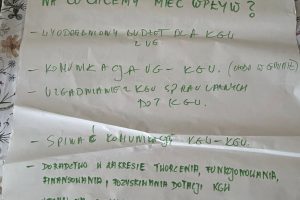 NA CO CHCEMY MIEĆ WPŁYW?
- WYODRĘBNIONY BUDŻET DLA KGW
Z UG
- KOMUNIKACJA UG - KGW. (
- UZGADNIANIE Z KGW SPRAW WAŻNYCH
DOT KGW.
- SPINA I KOMUNIKACJA KGW - KGW.
- DORADZTWO W ZAKRESIE TWORZENIA, FUNKCJONOWANIA,
FINANSOWANIA, POZYSKIWANIA DOTACJI KGW